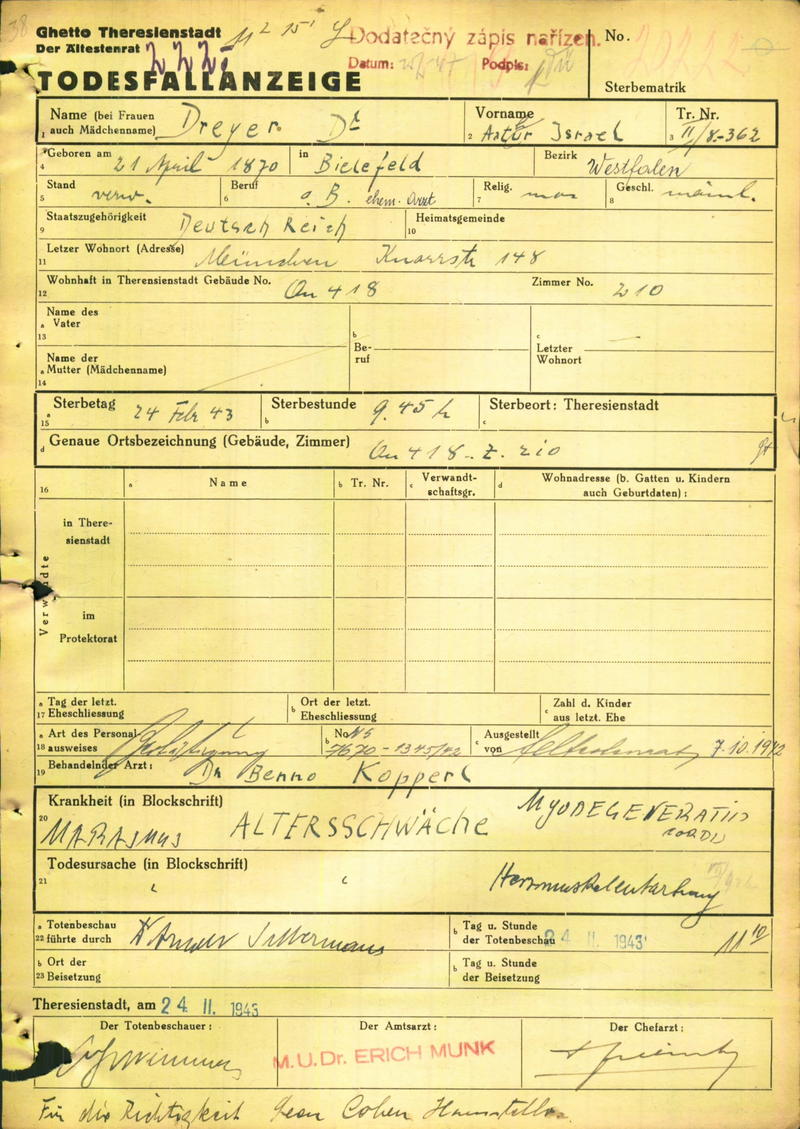 38
Ghetto Theresienstadt
Der Ältestenrat
Dodatečný zápis nařízen.
Datum: Podpis:
No.
TODESFALLANZEIGE
Sterbematrik
Name (bei Frauen auch Mädchenname) Dreyer Dr
1
Vorname Artur Israel
2
Tr. Nr. II/8-362
3
Geboren am 21 April 1870 in Bielefeld
4
Bezirk Westfalen
Stand verw. Beruf a. B. chem. Arzt Relig. mos Geschl. männl.
5 6 7 8
Staatszugehörigkeit Deutsch Reich Heimatsgemeinde
9 10
Letzer Wohnort (Adresse) München Knorrstr 148
11
Wohnhaft in Theresienstadt Gebäude No. Qu 418 Zimmer No. 210
12
Name des Vater
a 13
b Beruf
c Letzter Wohnort
Name der Mutter (Mädchenname)
a 14
Sterbetag 24 Feb 43 Sterbestunde 9.45 h Sterbeort: Theresienstadt
a 15 b c
Genaue Ortsbezeichnung (Gebäude, Zimmer) Qu 418 - Z. 210
d
16 a Name b Tr. Nr. c Verwandtschaftsgr. d Wohnadresse (b. Gatten u. Kindern auch Geburtdaten):
Verwandte
in Theresienstadt
im Protektorat
a Tag der letzt. b Ort der letzt. c Zahl d. Kinder
17 Eheschliessung Eheschliessung aus letzt. Ehe
a Art des Personal- b No. c Ausgestellt
18 ausweises 7670-1345/42 von 7.10.1942
Behandelnder Arzt: Dr Benno Kopperl
19
Krankheit (in Blockschrift)
20 MARASMUS ALTERSSCHWÄCHE MYODEGENERATIO CORDIS
Todesursache (in Blockschrift)
21 Herzmuskelentartung
a Totenbeschau b Tag u. Stunde
22 führte durch der Totenbeschau 24 II. 1943 11 10
b Ort der b Tag u. Stunde
23 Beisetzung der Beisetzung
Theresienstadt, am 24 II. 1943
Der Totenbeschauer: Der Amtsarzt: Der Chefarzt:
M.U.Dr. ERICH MUNK
Für die Richtigkeit